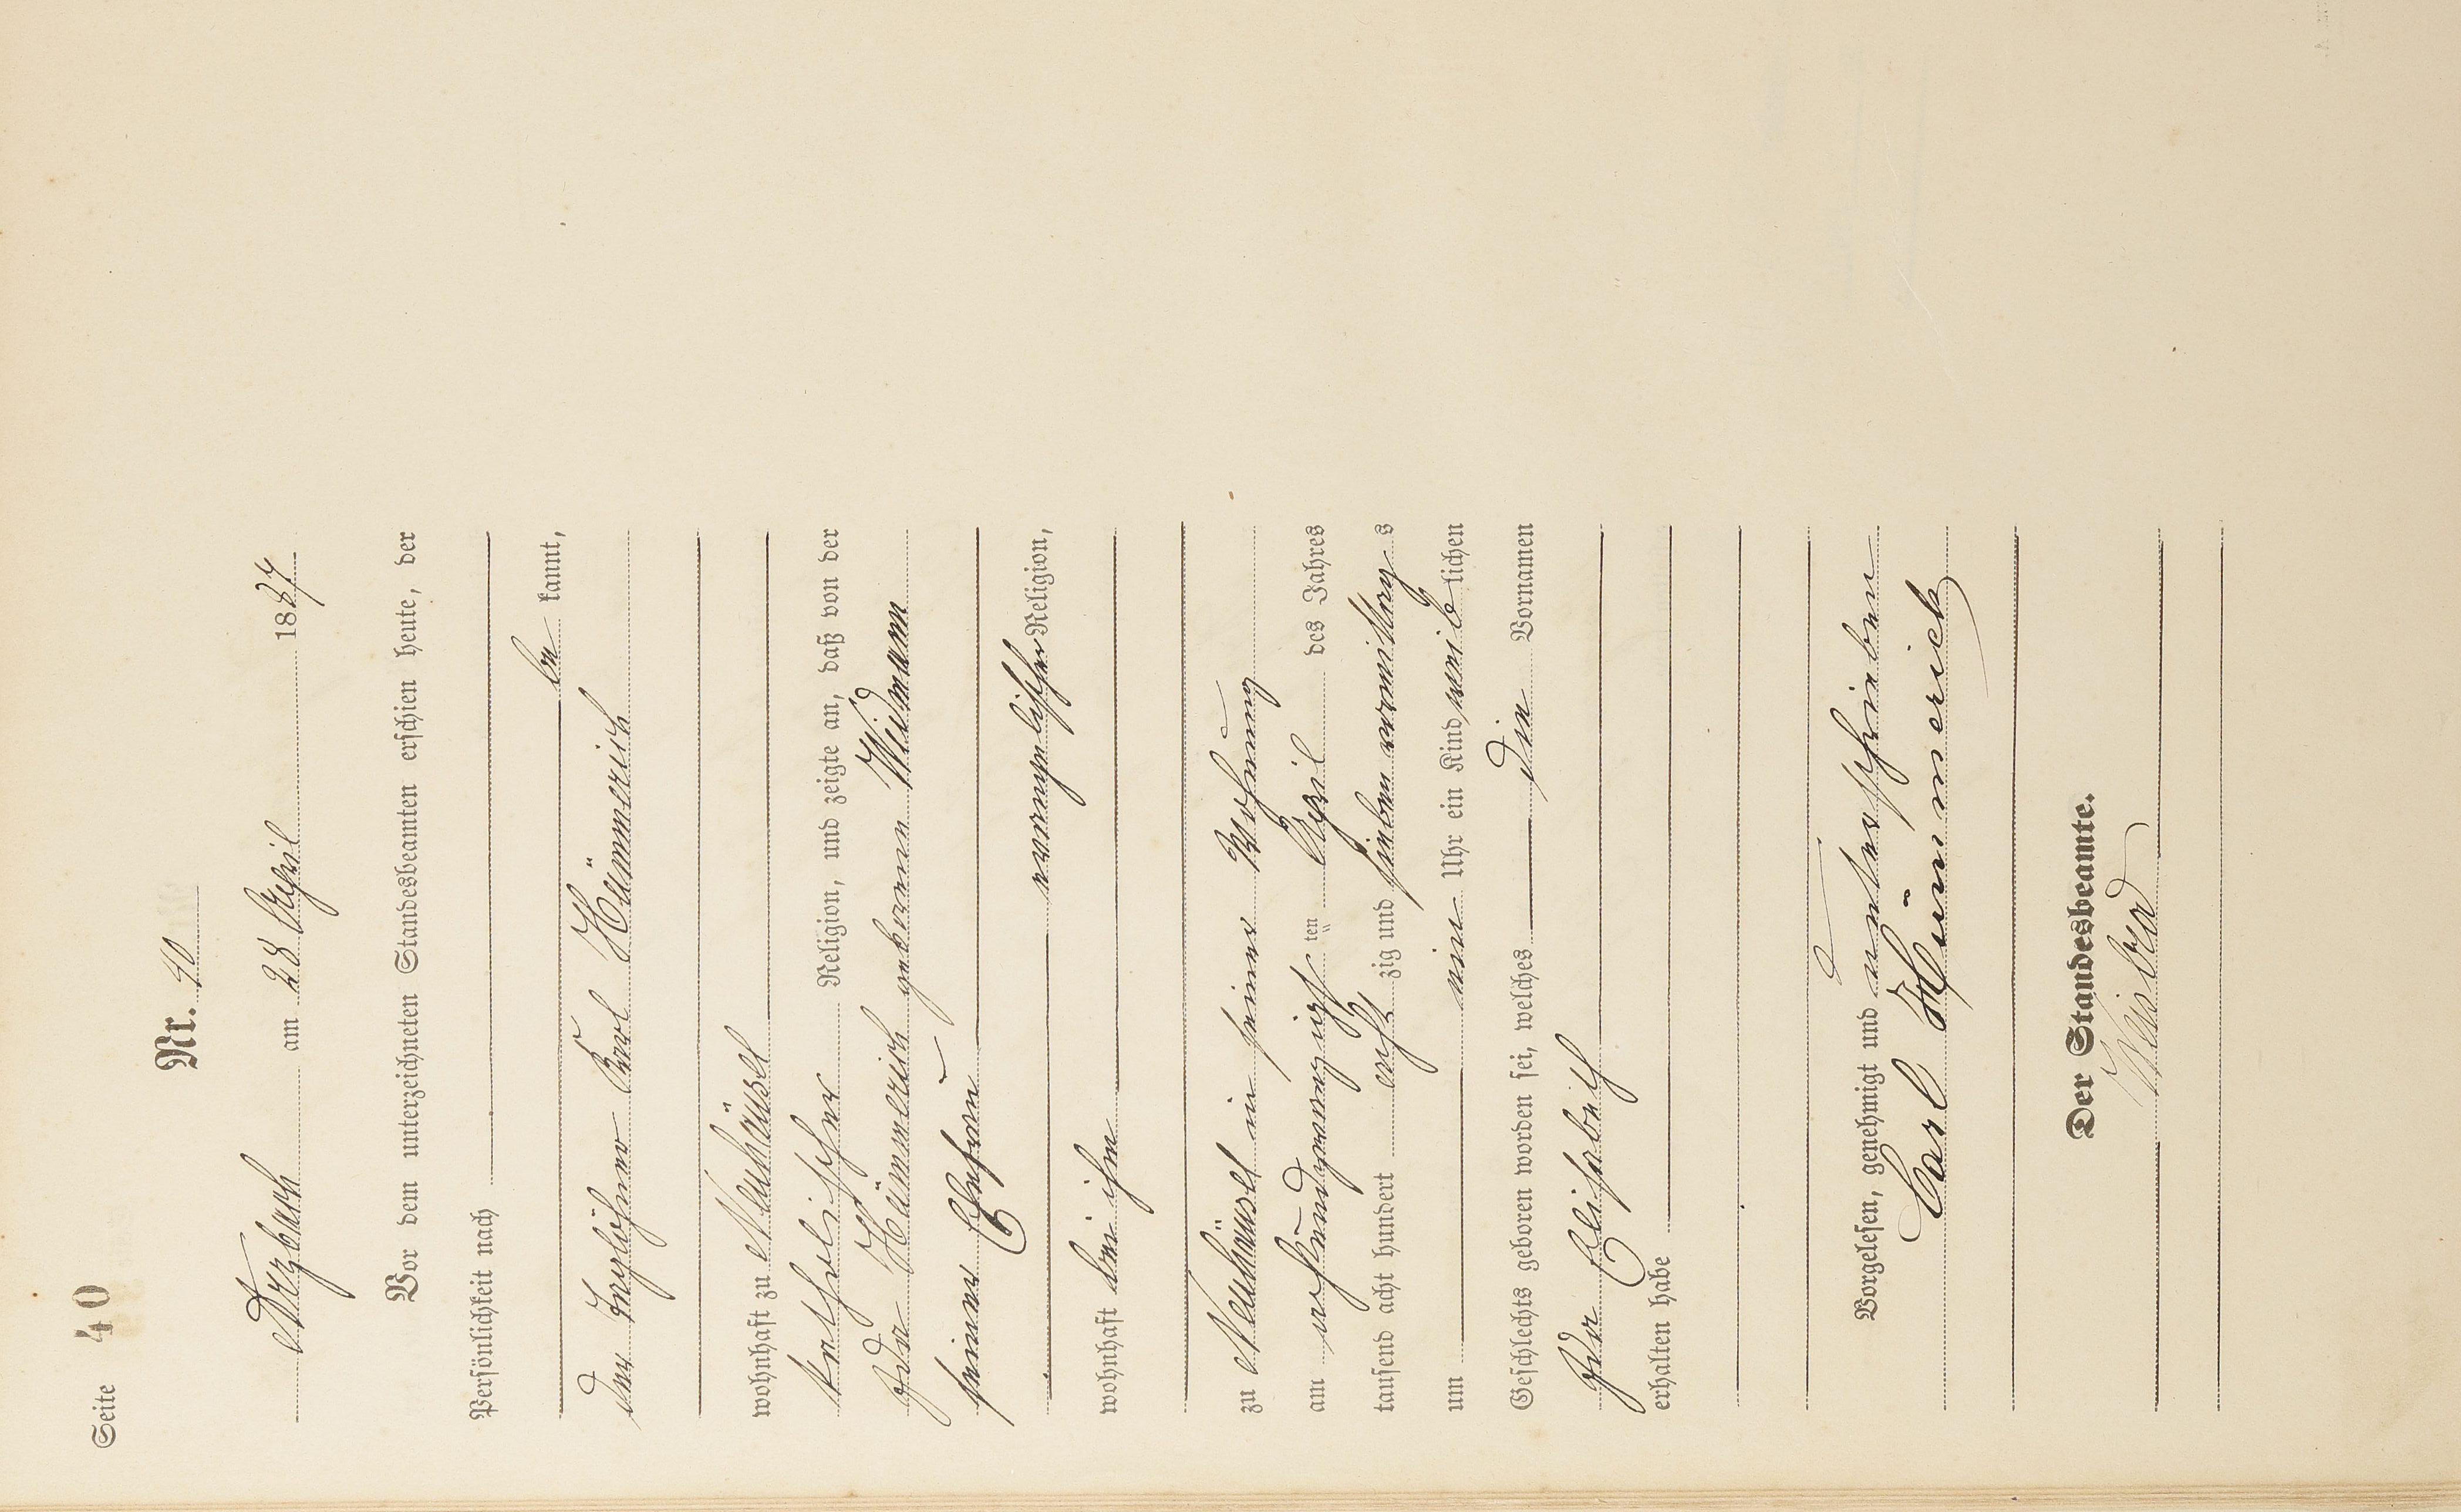 Seite 40
Nr. 40
Arzbach am 28 April 1887
Vor dem unterzeichneten Standesbeamten erschien heute, der
Persönlichkeit nach
be kannt,
der Taglöhner Karl Hümmerich
wohnhaft zu Neuhäusel
katholischer Religion, und zeigte an, daß von der
Ida Hümmerich geborenen Widmann
seiner Ehefrau
evangelischer Religion,
wohnhaft bei ihm
zu Neuhäusel in seiner Wohnung
am achtundzwanzigsten ten April des Jahres
tausend acht hundert acht zig und sieben vormittags
um ein Uhr ein Kind weiblichen
Geschlechts geboren worden sei, welches die Vornamen
Ida Elisabeth
erhalten habe
Vorgelesen, genehmigt und unterschrieben
Carl Hümmerich
Der Standesbeamte.